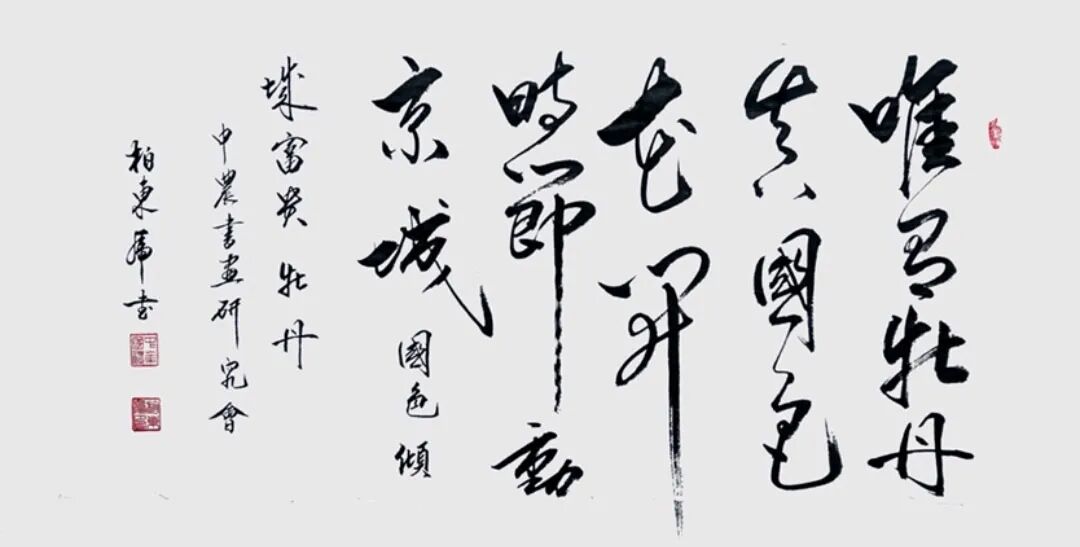 唯有牡丹
真國色
花開
時節動
京城國色傾
城富贵牡丹
中農書畫研究會
柏東书